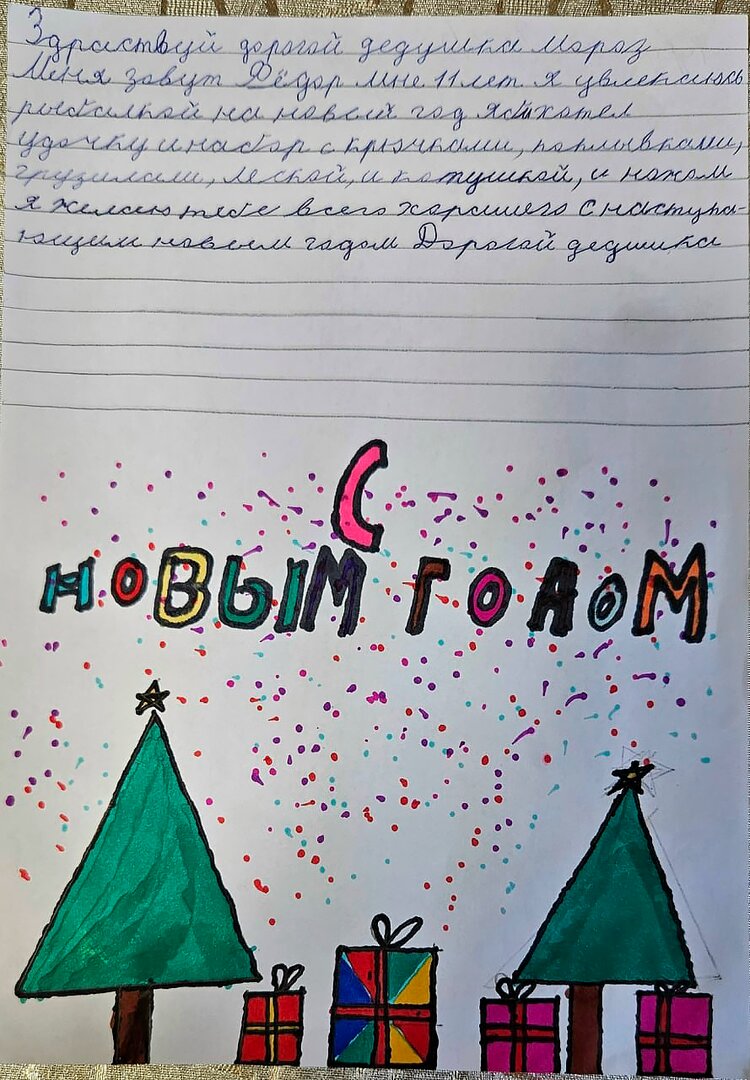 Здраствуй дорогой дедушка мороз
Меня зовут Фёдор мне 11 лет я увлекаюсь
рыбалкой на новый год я бы хотел
удочку и набор с крючками, поплывками,
грузилами, леской, и катушкой, и ножом
я желаю тебе всего хорошего С наступа-
ющим новым годом Дорогой дедушка
С
НОВЫМ ГОДОМ